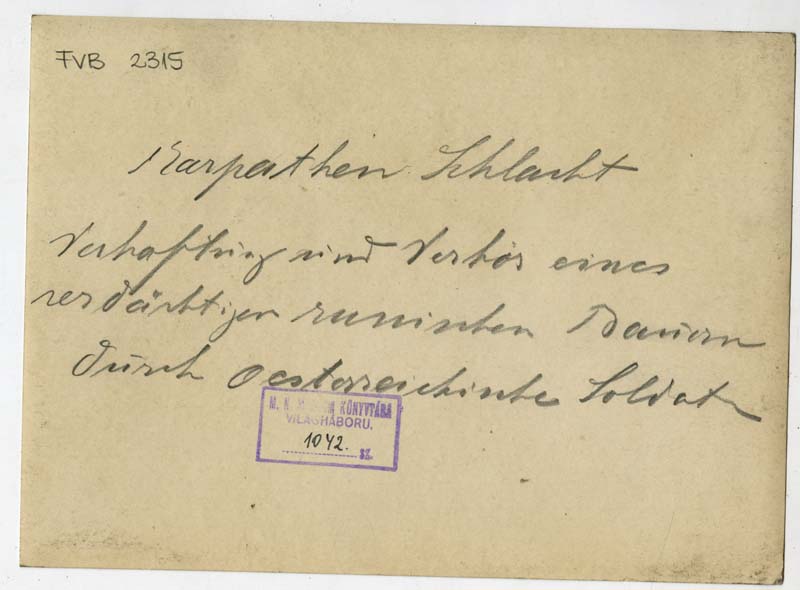 FVB 2315
Karpathen Schlacht
Verhaftung und Verhör eines
verdächtigen russischen Bauern
durch oesterreichische Soldaten
M. N. MÚZEUM KÖNYVTÁRA
VILÁGHÁBORU.
1042. sz.